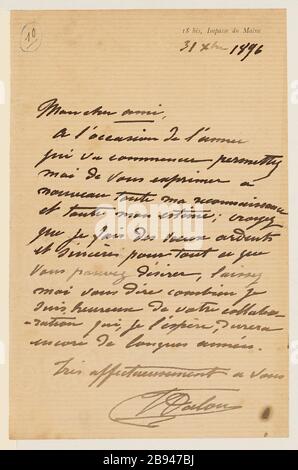 10
18 bis, Impasse du Maine
31 Xbre 1896
Mon cher ami,
A l'occasion de l'année
qui va commencer permettez
moi de vous exprimer a
nouveau toute ma reconnaissance
et toute mon estime; croyez
que je fais des vœux ardents
et sincères pour tout ce que
vous pouvez desirer, laissez
moi vous dire combien je
suis heureux de votre collabo-
ration qui, je l'espère, durera
encore de longues années.
Très affectueusement a vous
Dalou
alamy
Image ID: 2B947BJ
www.alamy.com